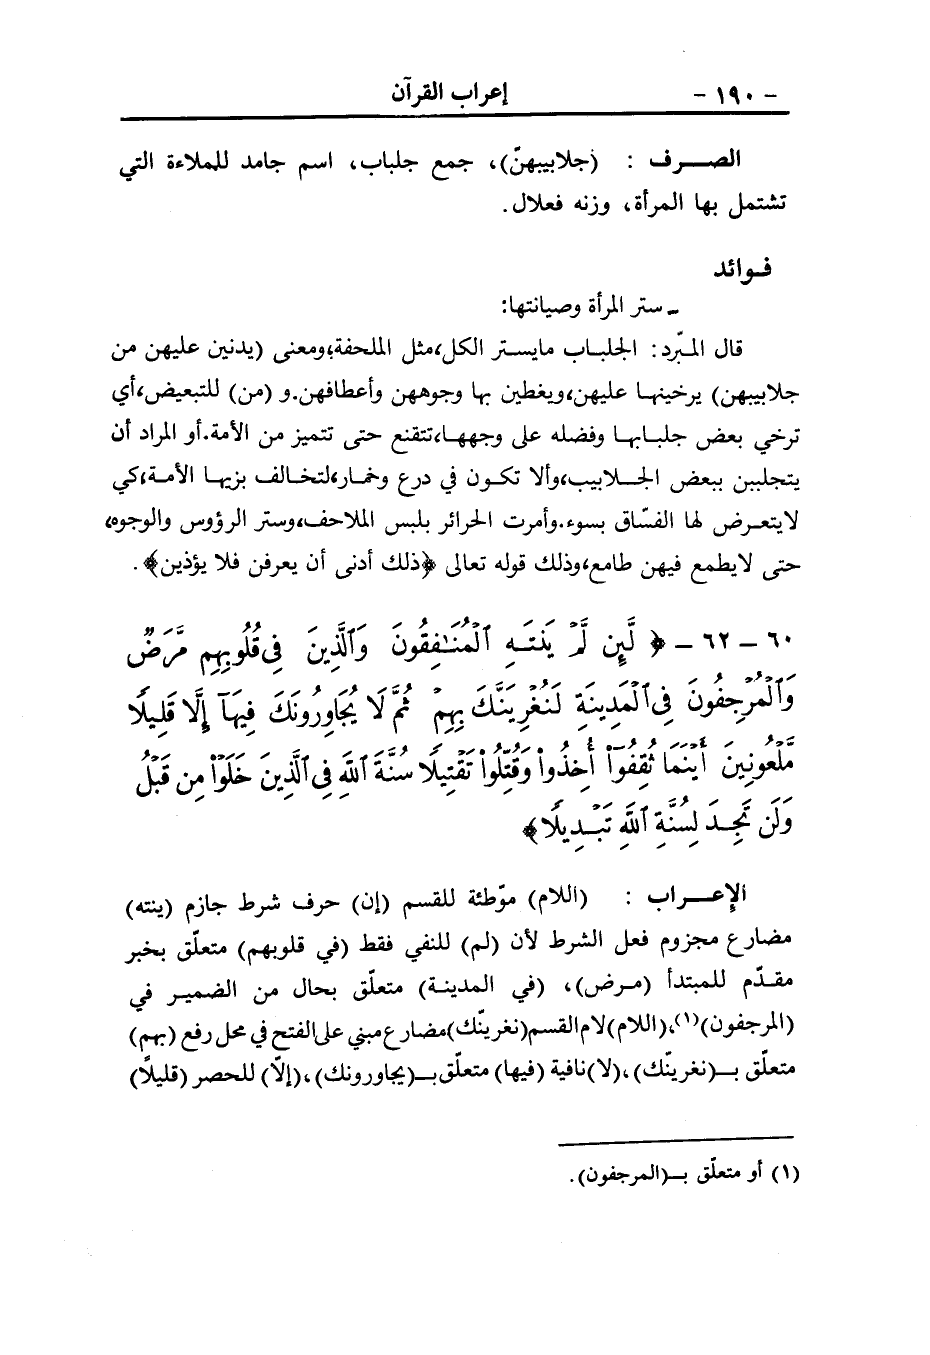 - ١٩٠ - إعراب القرآن
الصـرف : (جلابيبهنّ)، جمع جلباب، اسم جامد للملاءة التي
تشتمل بها المرأة، وزنه فعلال.
فـوائد
ـ ستر المرأة وصيانتها:
قال المبّرد: الجلبـاب مايستر الكل،مثل الملحفة،ومعنى (يدنين عليهن من
جلابيبهن) يرخينهـا عليهن،ويغطين بها وجوههن وأعطافهن.و (من) للتبعيض،أي
ترخي بعض جلبـابها وفضله على وجههـا،تتقنع حتى تتميز من الأمة.أو المراد أن
يتجلببن ببعض الجـلابيب،وألا تكـون في درع وخمار،لتخـالف بزيهـا الأمـة،كي
لايتعـرض لها الفسّاق بسوء.وأمرت الحرائر بلبس الملاحف،وستر الرؤوس والوجوه،
حتى لايطمع فيهن طامع،وذلك قوله تعالى ﴿ذلك أدنى أن يعرفن فلا يؤذين﴾.
٦٠ - ٦٢ - ﴿ لَّئِن لَّمْ يَنتَهِ ٱلْمُنَٰفِقُونَ وَٱلَّذِينَ فِى قُلُوبِهِم مَّرَضٌ
وَٱلْمُرْجِفُونَ فِى ٱلْمَدِينَةِ لَنُغْرِيَنَّكَ بِهِمْ ثُمَّ لَا يُجَاوِرُونَكَ فِيهَآ إِلَّا قَلِيلًا
مَّلْعُونِينَ أَيْنَمَا ثُقِفُوٓا۟ أُخِذُوا۟ وَقُتِّلُوا۟ تَقْتِيلًا سُنَّةَ ٱللَّهِ فِى ٱلَّذِينَ خَلَوْا۟ مِن قَبْلُ
وَلَن تَجِدَ لِسُنَّةِ ٱللَّهِ تَبْدِيلًا﴾
الإعـراب : (اللام) موّطئة للقسم (إن) حرف شرط جازم (ينته)
مضارع مجزوم فعل الشرط لأن (لم) للنفي فقط (في قلوبهم) متعلّق بخبر
مقـدّم للمبتدأ (مـرض)، (في المدينـة) متعلّق بحال من الضميـر في
(المرجفون)(١)،(اللام)لام القسم(نغرينّك)مضارع مبني على الفتح في محل رفع (بهم)
متعلّق بـ(نغرينّك)،(لا)نافية (فيها) متعلّق بـ(يجاورونك)،(إلّا) للحصر (قليلًا)
(١) أو متعلّق بـ(المرجفون).